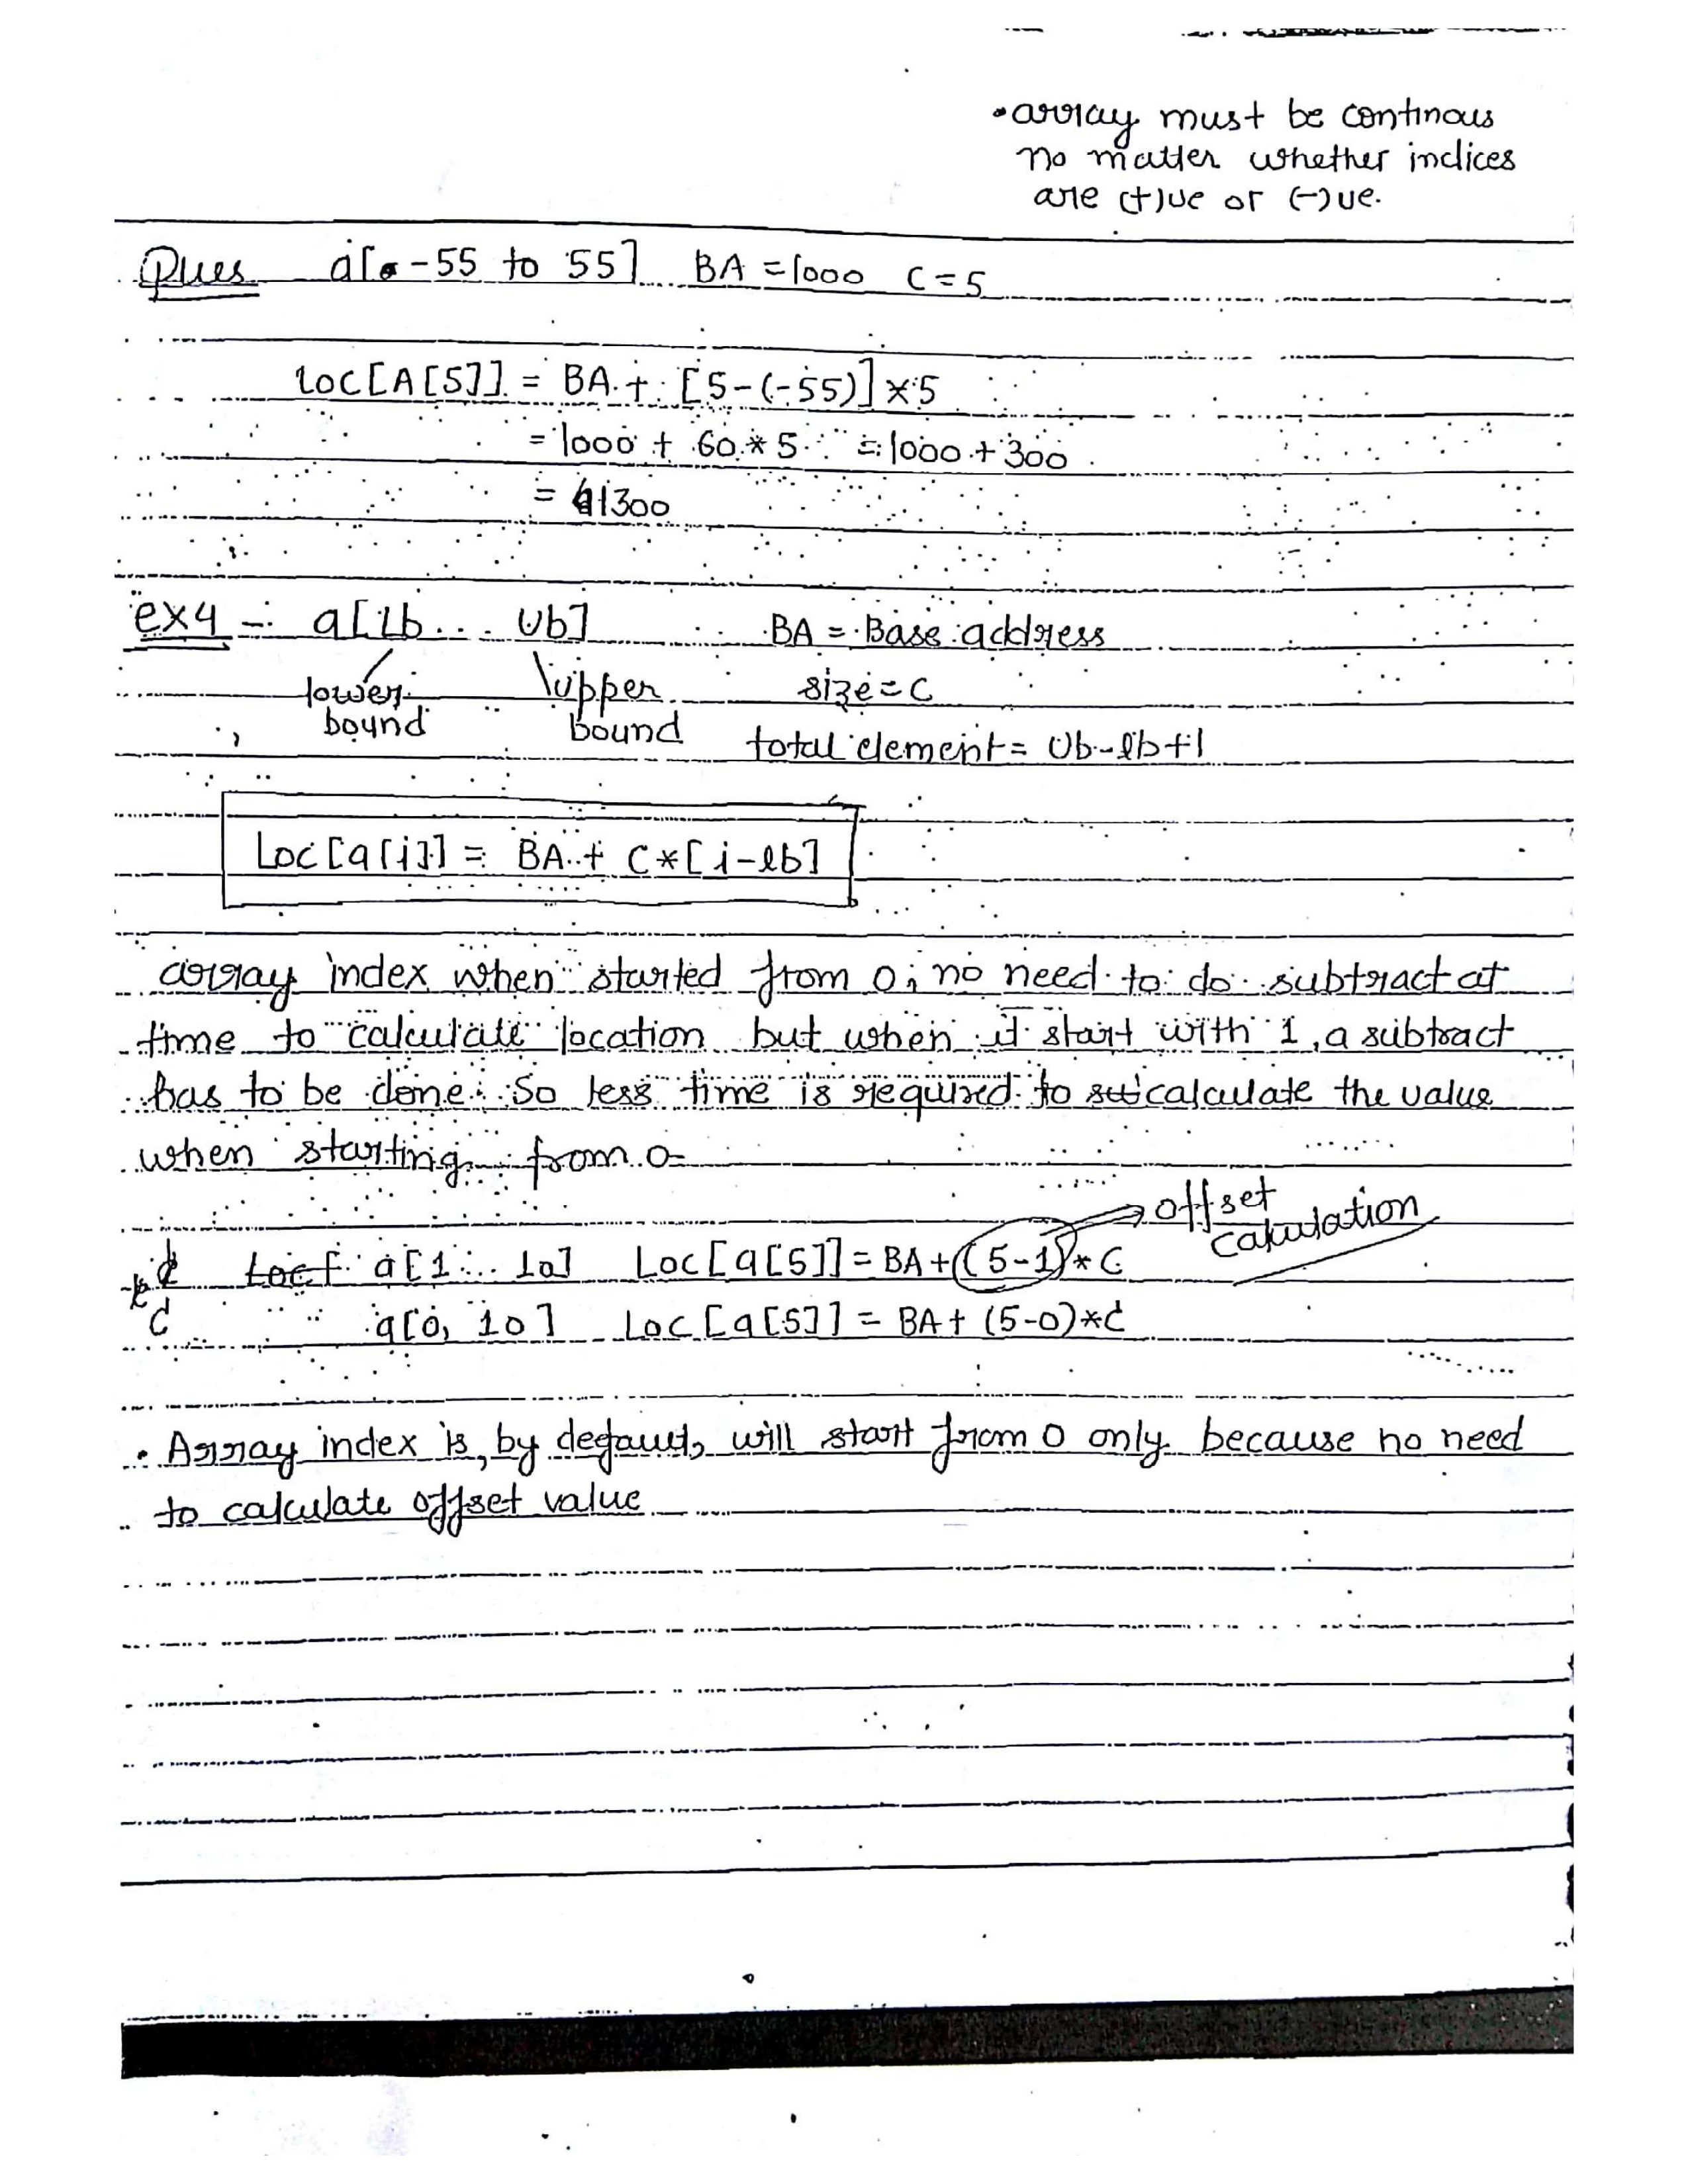 • array must be continous
no matter whether indices
are (+)ve or (-)ve.
Ques a[-55 to 55] BA = 1000 C = 5
LOC[A[5]] = BA + [5-(-55)] × 5
= 1000 + 60 * 5 = 1000 + 300
= 1300
ex4 - a[lb... Ub] BA = Base address
lower bound upper bound size = C
total element = Ub - lb + 1
Loc[a[i]] = BA + C * [i - lb]
array index when started from 0, no need to do subtract at
time to calculate location but when it start with 1, a subtract
has to be done. So less time is required to calculate the value
when starting from 0
offset calculation
a[1... 10] Loc[a[5]] = BA + (5-1) * C
a[0, 10] Loc[a[5]] = BA + (5-0) * C
• Array index is, by default, will start from 0 only because no need
to calculate offset value